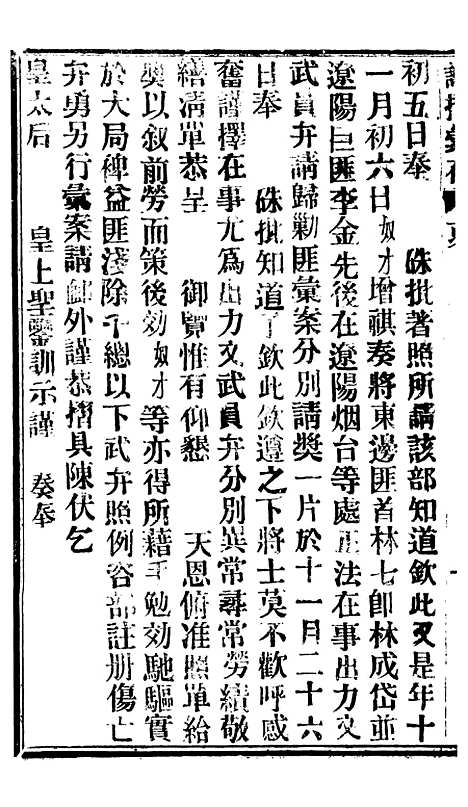 初五日奉　硃批著照所請該部知道欽此又是年十
一月初六日奴才增祺奏將東邊匪首林七卽林成岱並
遼陽巨匪李金先後在遼陽烟台等處正法在事出力文
武員弁請歸勦匪彙案分別請獎一片於十一月二十六
日奉　硃批知道了欽此欽遵之下將士莫不歡呼感
奮謹擇在事尤爲出力文武員弁分別異常尋常勞績敬
繕淸單恭呈　御覽惟有仰懇　天恩俯准照單給
獎以叙前勞而策後効奴才等亦得所藉手勉効馳驅實
於大局裨益匪淺除千總以下武弁照例咨部註册傷亡
弁勇另行彙案請卹外謹恭摺具陳伏乞
皇太后　皇上聖鑒訓示謹　奏奉